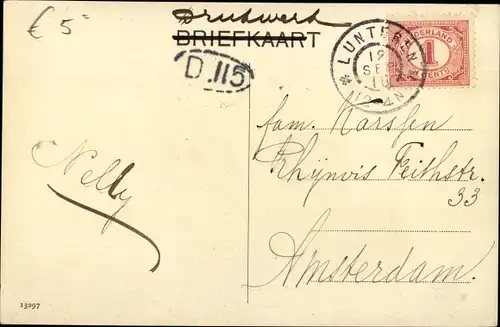 € 5=
Drukwerk
BRIEFKAART
D.115
LUNTEREN
19
SEP
16
NEDERLAND
1
CENT
fam. Karssen
Rhijnvis Feithstr.
33
Amsterdam.
Nelly
13297